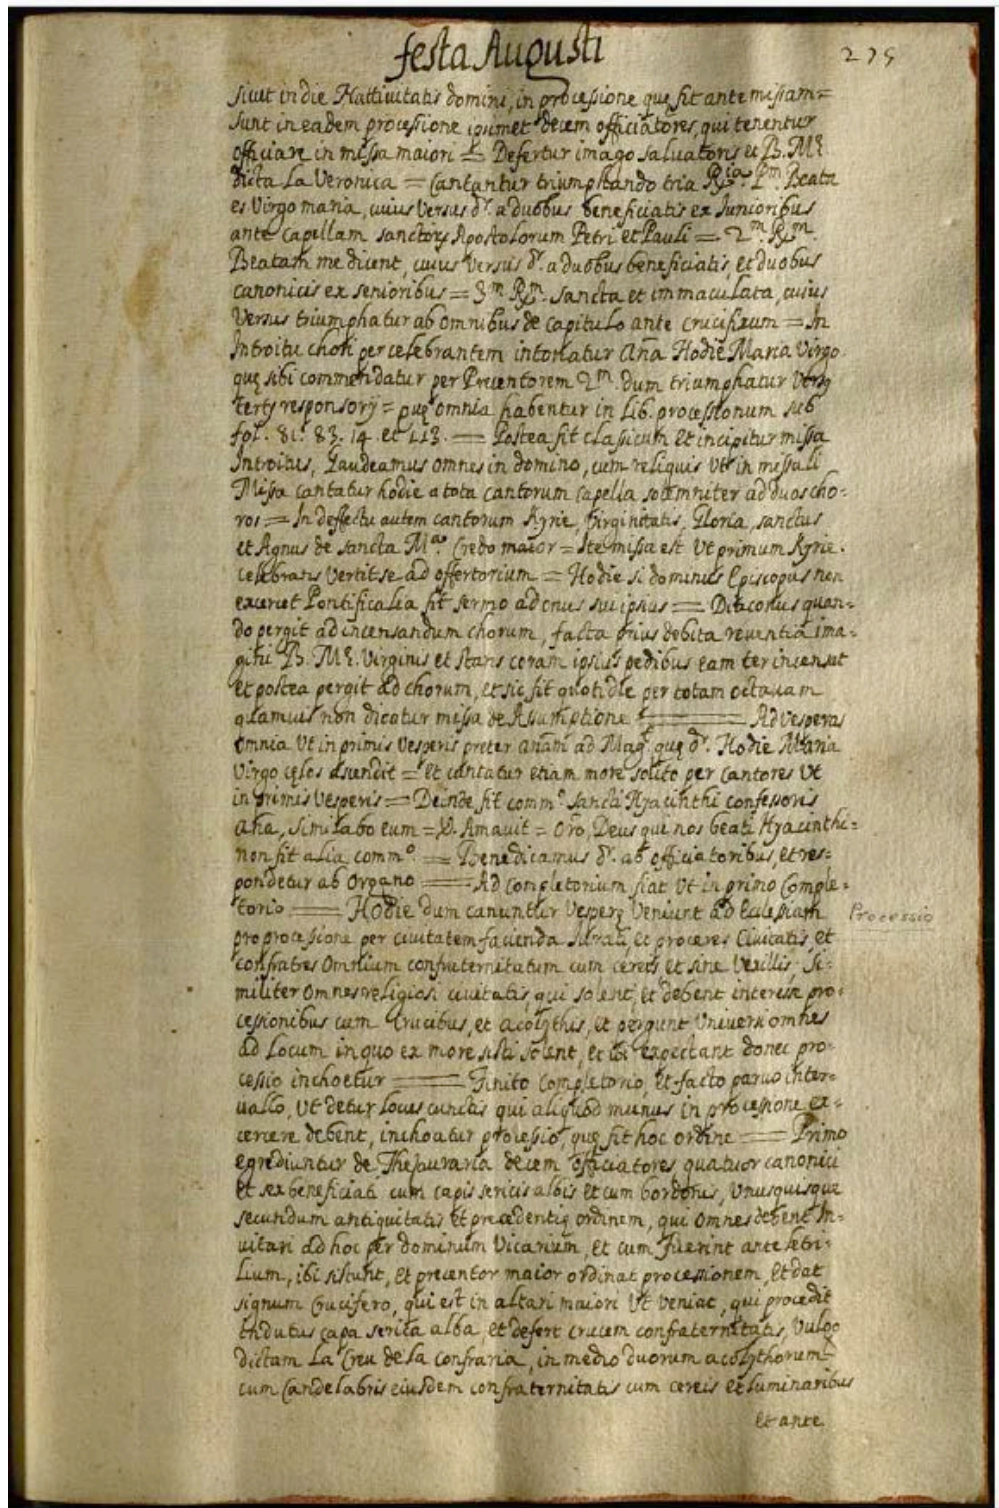 festa Augusti
275
sicut in die Nattivitatis domini, in processione quę fit ante missam =
sunt in eadem processione ipsimet decem officiatores, qui tenentur
officiare in missa maiori = Defertur imago salvatoris et B. Mę
dicta La Veronica = Cantantur triumphando tria Rria. Pm. Beata
es Virgo maria, cuius versus dr. a duobus beneficiatis ex Junioribus
ante Capellam sanctorum Apostolorum Petri et Pauli = 2m. Rm.
Beatam me dicent, cuius versus dr. a duobus beneficiatis, et duobus
canonicis ex senioribus = 3m. Rm. sancta et immaculata, cuius
versus triumphatur ab omnibus de capitulo ante crucifixum = In
Introitu chori per celebrantem intonatur Aña Hodie Maria Virgo
quę sibi commendatur per Precentorem 2m. dum triumphatur
tertÿ responsorÿ = quę omnia habentur in Lib. processionum sub
fol. 81. 83. 14. et 113. = Postea fit classicum et incipitur missa
Introitus, Gaudeamus omnes in domino, cum reliquis ut in missali
Missa cantatur hodie a tota cantorum Capella solemniter ad duos cho-
ros = In deffectu autem cantorum Kyrie, Virginitatis, Gloria, sanctus
et Agnus de sancta Ma. Credo maior = Ite missa est ut primum Kyrie.
celebratis vertit se ad offertorium = Hodie si dominus Episcopus non
exercet Pontificalia fit sermo ad sui ipsius = Diaconus quan-
do pergit ad incensandum chorum, facta prius debita reventia ima-
gini B. Mę. Virginis et stans coram ipsius pedibus eam ter incensat
et postea pergit ad chorum, et sic fit quotidie per totam octavam
quamvis non dicatur missa de Assumptione = Ad vesperas
omnia ut in primis vesperis preter anam ad Mag. quę dr. Hodie Maria
Virgo cęlos ascendit = et cantatur etiam more solito per Cantores ut
in primis vesperis = Deinde fit commo. sancti Hyacinthi confessoris
Aña, similabo eum = V. Amavit = Oro, Deus qui nos beati Hyacinthi =
non fit alia commo. = Benedicamus dr. ab officiatoribus, et res-
pondetur ab Organo = Ad completorium fiat ut in primo Comple-
torio = Hodie dum canuntur vesperę veniunt ad Ecclesiam
Processio
pro processione per civitatem facienda Jurati, et proceres Civitatis, et
confratres omnium confraternitatum cum cereis et sine vexillis, Si-
militer omnes religiosi civitatis, qui solent, et debent interesse pro-
cessionibus cum Crucibus, et acolythis, et pergunt universi omnes
ad Locum in quo ex more sisti solent, et ibi expectant donec pro-
cessio inchoetur = Finito Completorio, et facto parvo inter-
vallo, ut detur locus cunctis qui aliquod munus in processione ex-
cercere debent, inchoatur processio, quę fit hoc ordine = Primo
egrediuntur de Thesauraria decem officiatores, quatuor canonici
et sex beneficiati cum capis sericis albis et cum bordonis, unusquisque
secundum antiquitatis et precedentię ordinem, qui omnes debent in-
vitari ad hoc per dominum Vicarium, et cum fuerint ante letri-
lium, ibi sistunt, et precentor maior ordinat processionem, et dat
signum Crucifero, qui est in altari maiori ut veniat, qui procedit
indutus capa serica alba, et defert crucem confraternitatis, vulgo
dictam La Creu de la confraria, in medio duorum acolythorum
cum Candelabris eiusdem confraternitatis cum cereis et luminaribus
et ante